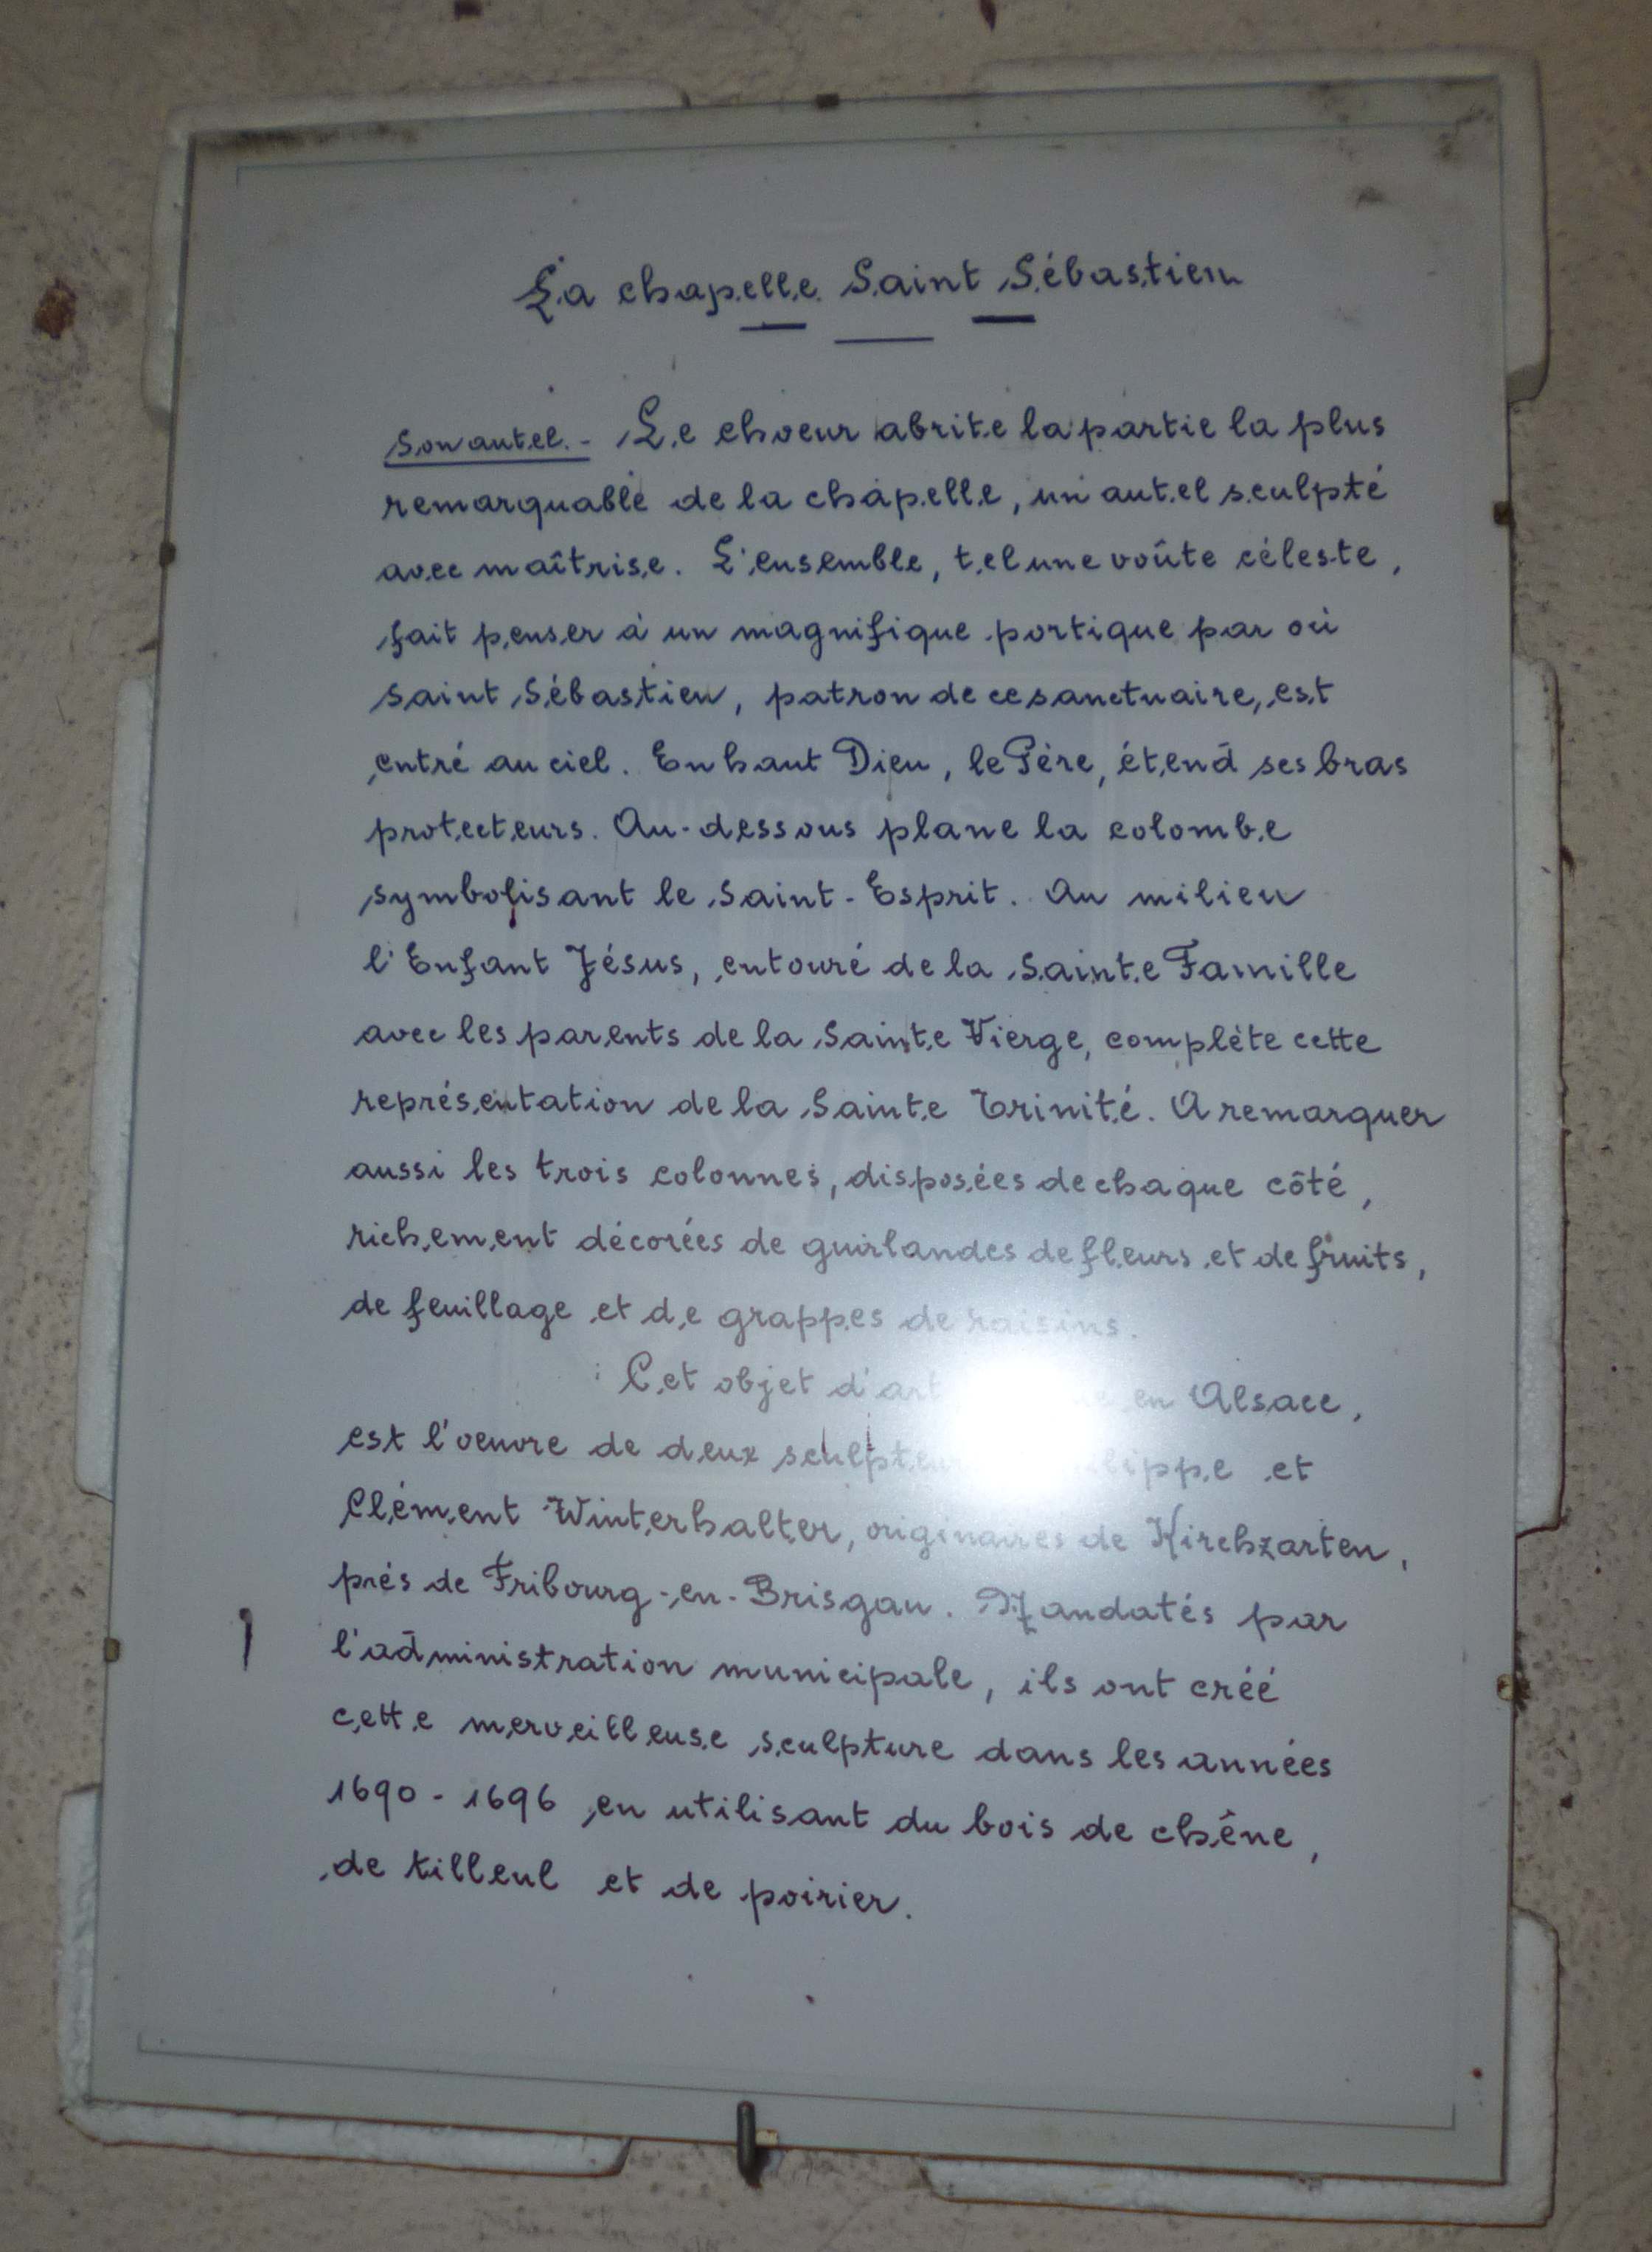 La chapelle Saint Sébastien
Son autel. - Le choeur abrite la partie la plus
remarquable de la chapelle, un autel sculpté
avec maîtrise. L'ensemble, tel une voûte céleste,
fait penser à un magnifique portique par où
Saint Sébastien, patron de ce sanctuaire, est
entré au ciel. En haut Dieu, le Père, étend ses bras
protecteurs. Au-dessous plane la colombe
symbolisant le Saint-Esprit. Au milieu
l'Enfant Jésus, entouré de la Sainte Famille
avec les parents de la Sainte Vierge, complète cette
représentation de la Sainte Trinité. A remarquer
aussi les trois colonnes, disposées de chaque côté,
richement décorées de guirlandes de fleurs et de fruits,
de feuillage et de grappes de raisins.
Cet objet d'art en Alsace,
est l'oeuvre de deux et
Clément Winterhalter, originaires de Kirchzarten,
près de Fribourg-en-Brisgau. Mandatés par
l'administration municipale, ils ont créé
cette merveilleuse sculpture dans les années
1690 - 1696 en utilisant du bois de chêne,
de tilleul et de poirier.